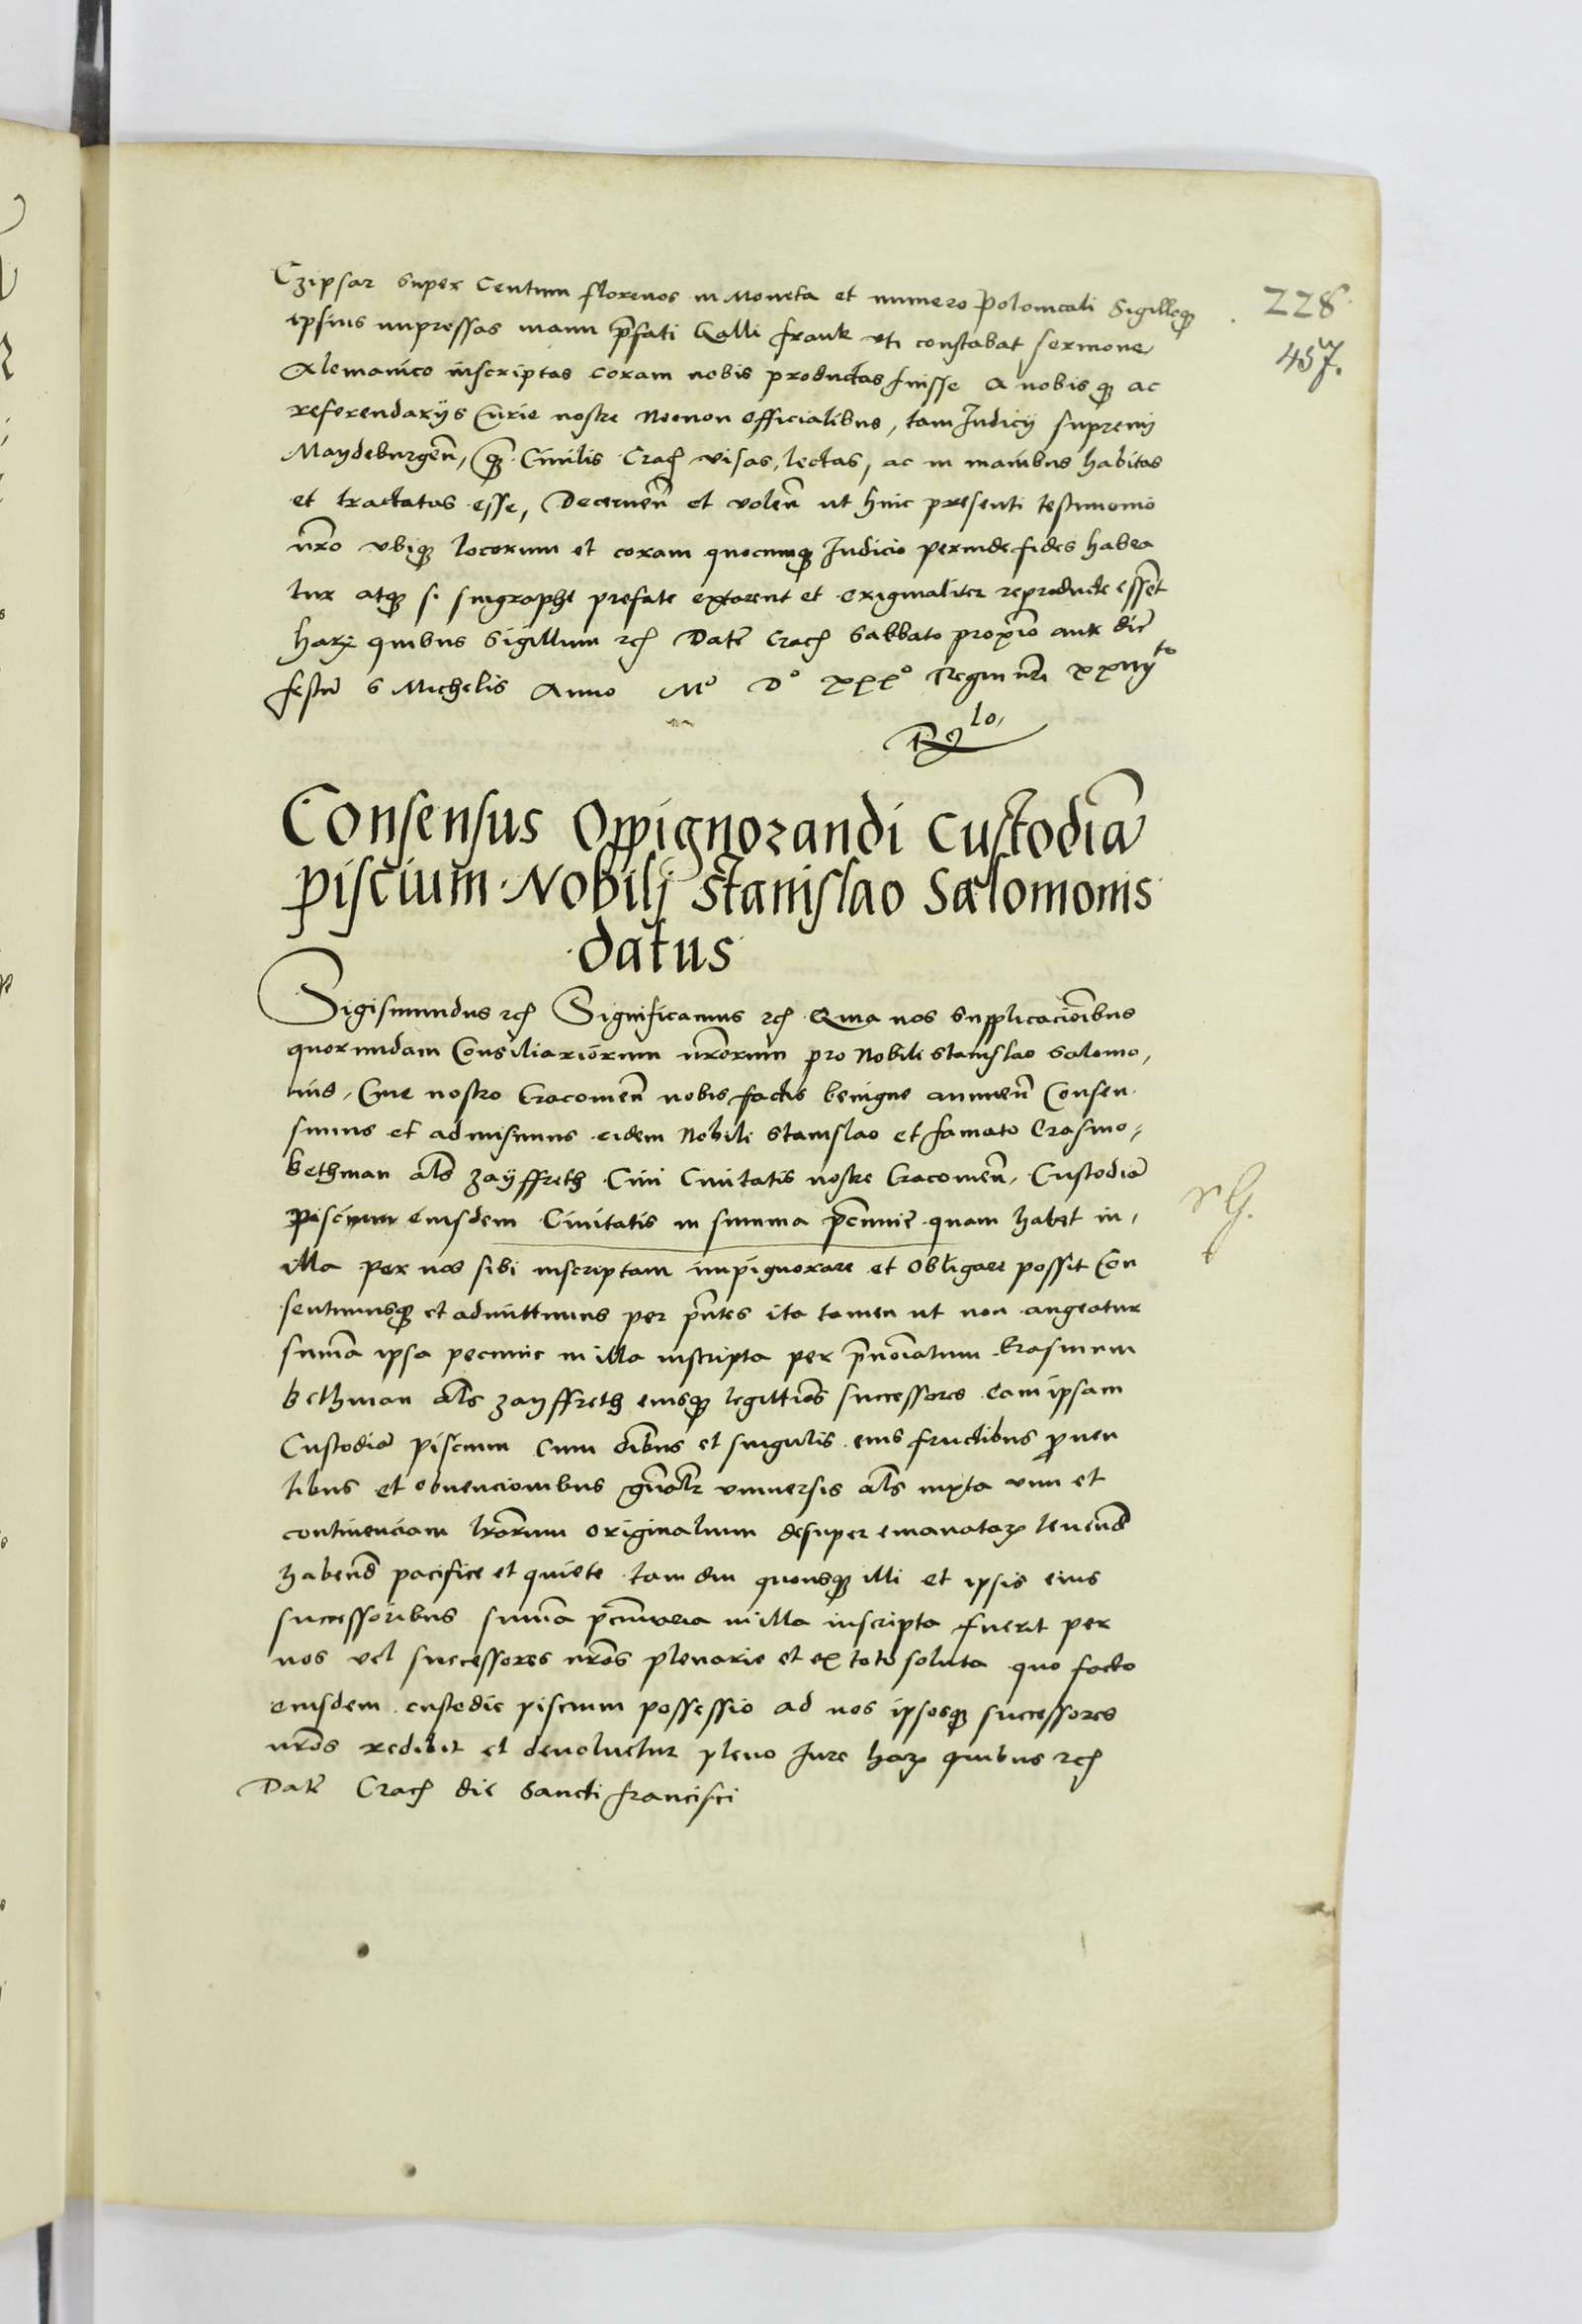 Czipsar super Centum florenos in Moneta et numero Polonicali Sigilloq₃
228
ipsius impressas manu p̄fati Galli frank vti constabat sermone
457.
Alemanico inscriptas coram nobis productas fuisse a nobis q₃ ac
referendarijs Curie nostre Necnon officialibus, tam Iudicij supremi
Maydeburgeñ, q̃ Ciuilis Cracꝭ visas, lectas, ac in manibus habitas
et tractatas esse, Decerneñ et voleñ ut huic presenti testimonio
nr̄o vbiq₃ locorum et coram quocumq₃ Iudicio perinde fides habea
tur atq₃ si singraphe prefate extarent et originaliter reproducte essēt
Harꝝ quibus Sigillum rcꝭ Datum Cracꝭ Sabbato proximo ante diē
festū S Michelis Anno M° D° xxx° Regni nr̄i xxiiij to
Consensus Oppignorandi Custodiā
piscium Nobilj Stanislao Salomonis
datus
Sigismundus rcꝭ Significamus rcꝭ Quia nos supplicacionibus
quorundam Consiliariorum nr̄orum pro Nobili Stanislao Salomo,
nis, Ciue nostro Cracouieñ nobis factis benigne annueñ Consen
simus et admisimus eidem Nobili Stanislao et famato Erasmo,
bethman als zayffreth Ciui Ciuitatis nostre Cracouieñ, Custodiā
Piscium eiusdem Ciuitatis in summa pecunie quam habet in,
illa per nos sibi inscriptam impignorare et obligare possit Con
sentimusq₃ et admittimus per pn̄tes ita tamen ut non augeatur
sum̄a ipsa pecunie in illa inscripta per p̄noīatum Erasmum
bethman als zayffreth eiusq₃ legittīos successores eam ipsam
Custodiā piscium cum oībus et singulis eius fructibus ꝓuen
tibus et obuencionibus gn̄alr vniuersis als iuxta vim et
continenciam lr̄arum originalium desuper emanataꝝ tenend̄
habend̄ pacifice et quiete tam diu quousq₃ illi et ipsis eius
successoribus sum̄a pecuniaria in illa inscripta fuerit per
nos vel successores nr̄os plenarie et ex toto soluta quo facto
eiusdem custodie piscium possessio ad nos ipsosq₃ successores
nr̄os redibit et deuoluetur pleno Iure Harꝝ quibus rcꝭ
Datum Cracꝭ die Sancti francisci